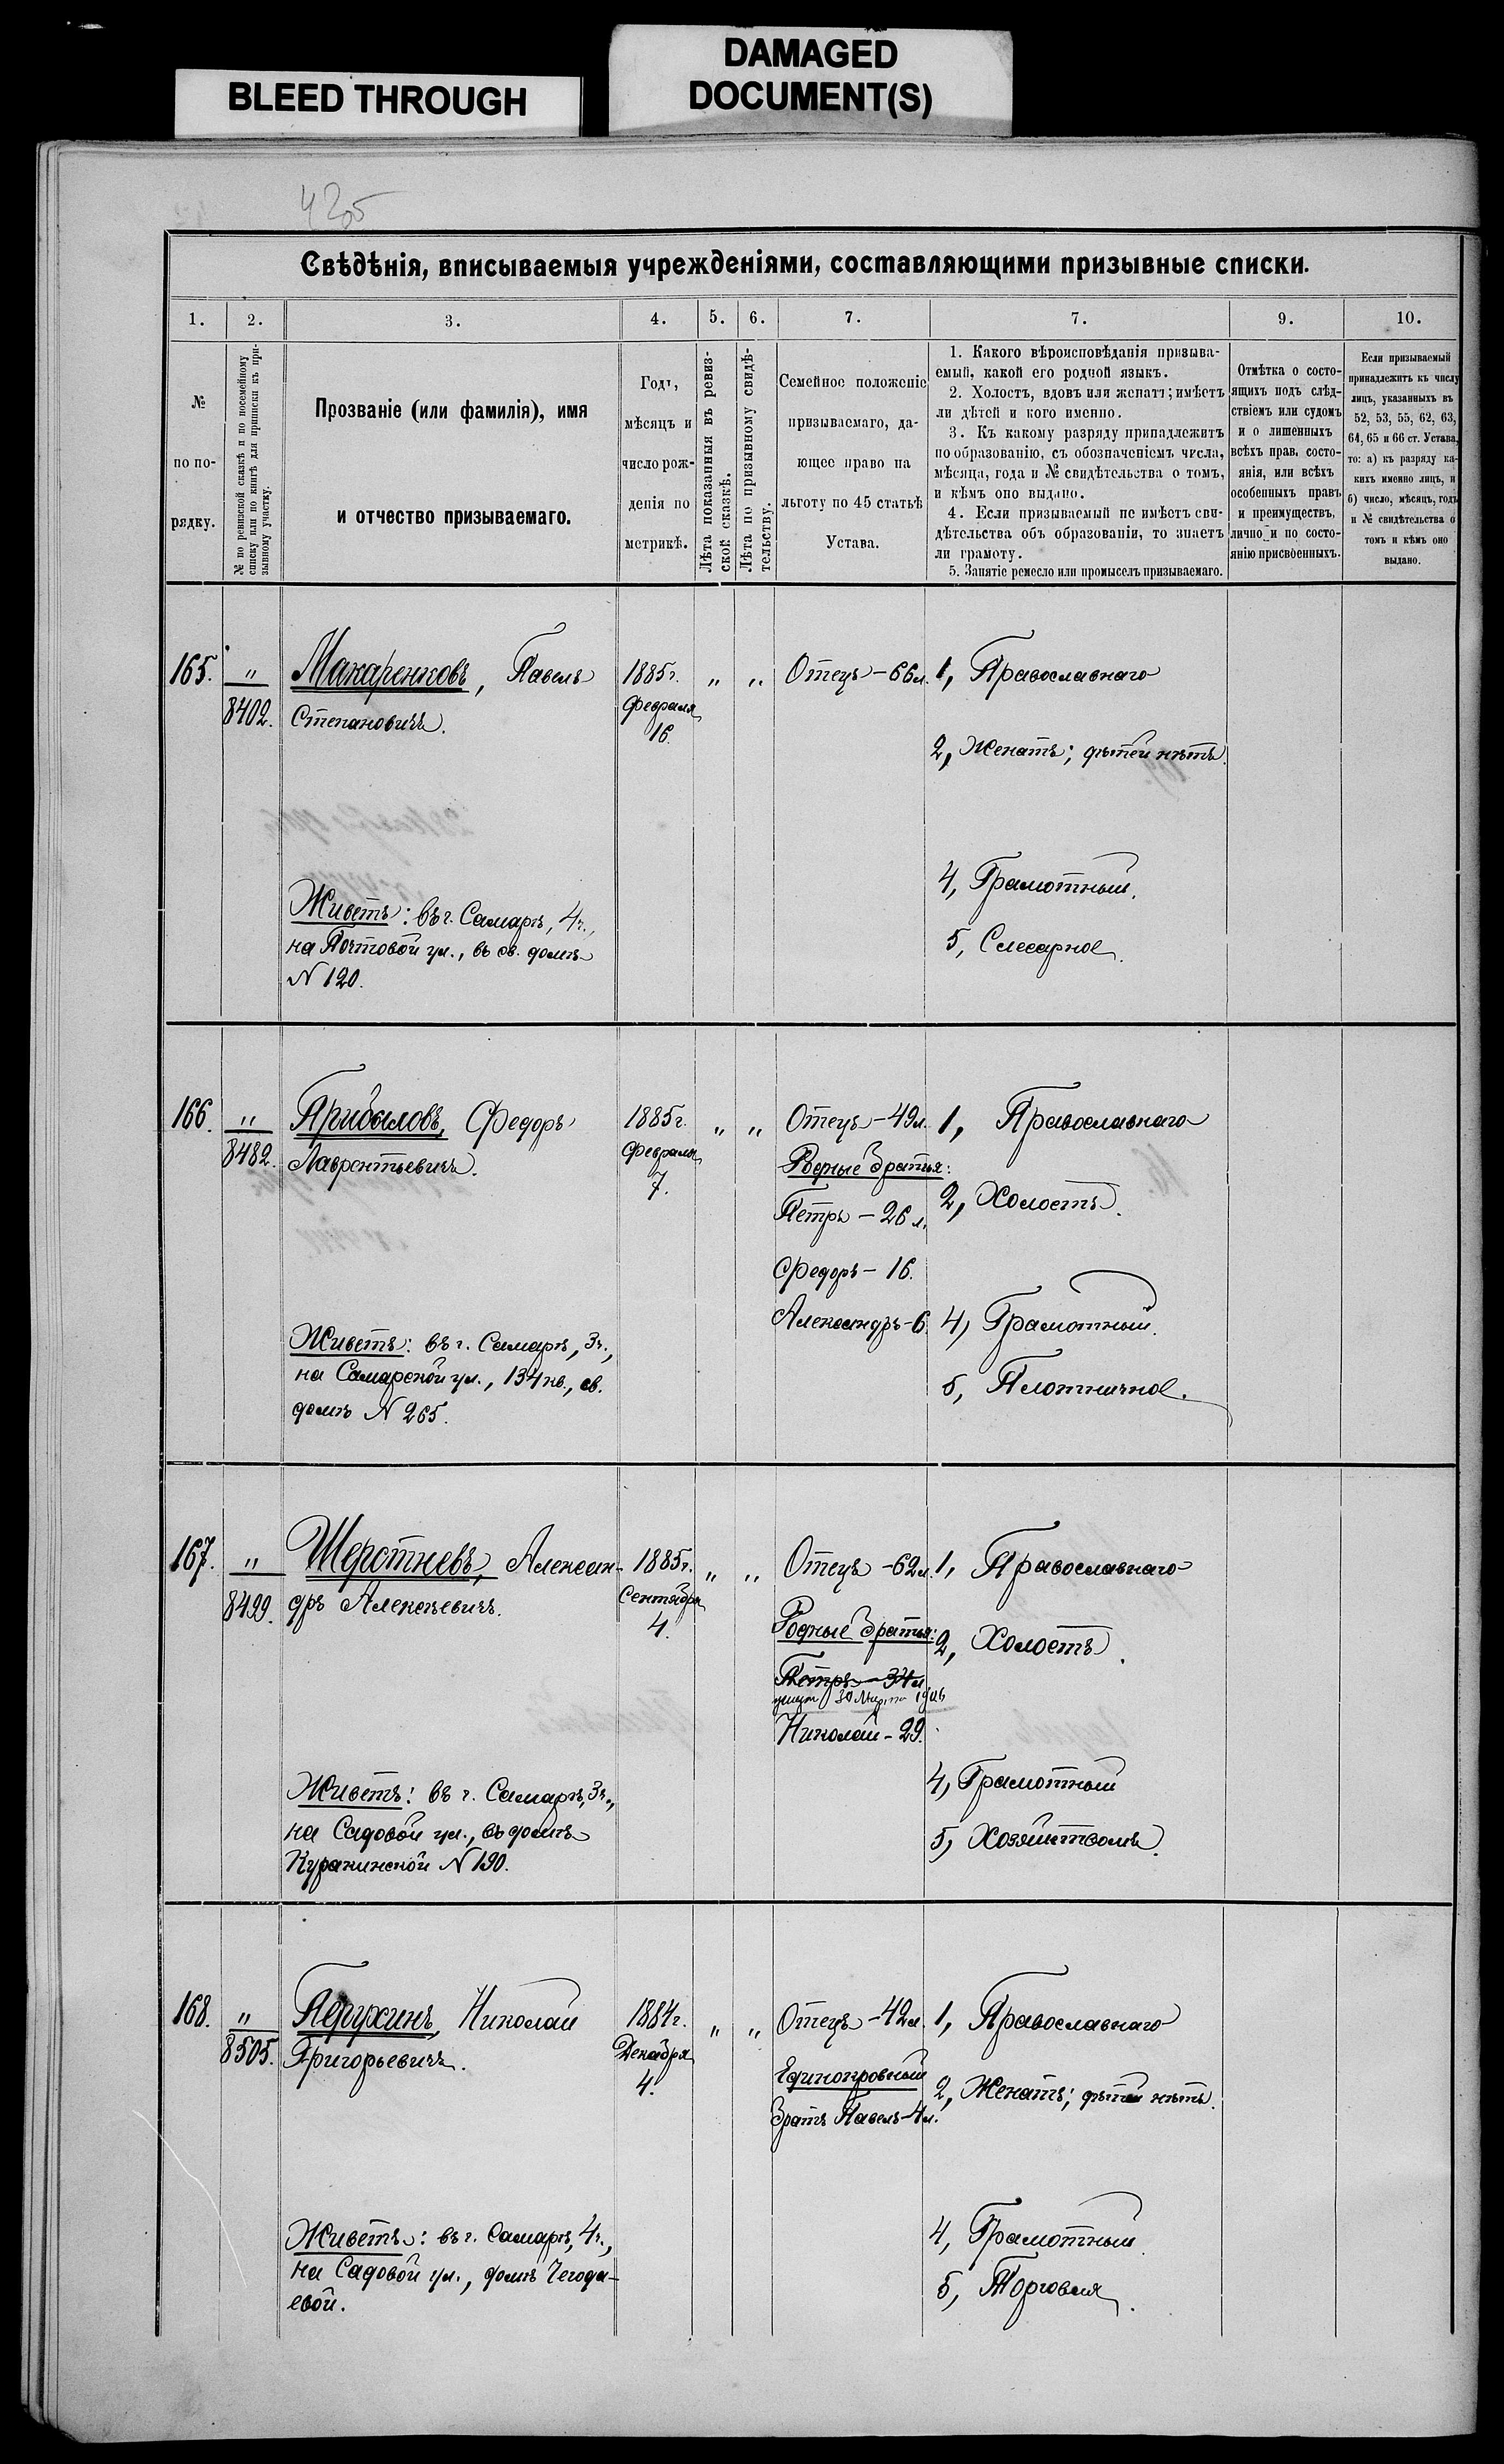 BLEED THROUGH
DAMAGED
DOCUMENT(S)
Свѣдѣнія, вписываемыя учрежденіями, составляющими призывные списки.
1.
2.
3.
4.
5.
6.
7.
7.
9.
10.
№
по по-
рядку.
№ по ревизской сказкѣ и по посемейному
списку или по книгѣ для приписки къ при-
зывному участку.
Прозваніе (или фамилія), имя
и отчество призываемаго.
Годъ,
мѣсяцъ и
число рож-
денія по
метрикѣ.
Лѣта показанныя въ ревиз-
ской сказкѣ.
Лѣта по призывному свидѣ-
тельству.
Семейное положеніе
призываемаго, да-
ющее право на
льготу по 45 статьѣ
Устава.
1. Какого вѣроисповѣданія призыва-
емый, какой его родной языкъ.
2. Холостъ, вдовъ или женатъ; имѣетъ
ли дѣтей и кого именно.
3. Къ какому разряду принадлежитъ
по образованію, съ обозначеніемъ числа,
мѣсяца, года и № свидѣтельства о томъ,
и кѣмъ оно выдано.
4. Если призываемый не имѣетъ сви-
дѣтельства объ образованіи, то знаетъ
ли грамоту.
5. Занятіе ремесло или промыселъ призываемаго.
Отмѣтка о состо-
ящихъ подъ слѣд-
ствіемъ или судомъ
и о лишенныхъ
всѣхъ прав. состо-
янія, или всѣхъ
особенныхъ правъ
и преимуществъ,
лично и по состо-
янію присвоенныхъ.
Если призываемый
принадлежитъ къ числу
лицъ, указанныхъ въ
52, 53, 55, 62, 63,
64, 65 и 66 ст. Устава,
то: а) къ разряду ка-
кихъ именно лицъ, и
б) число, мѣсяцъ, годъ
и № свидѣтельства о
томъ и кѣмъ оно
выдано.
165.
"
8402.
Макаренковъ, Павелъ
Степановичъ.
Живетъ: въ г. Самарѣ, 4 ч.,
на Почтовой ул., въ св. домѣ
N 120.
1885 г.
Февраля
16.
" "
Отецъ – 66 л.
1, Православнаго
2, Женатъ; дѣтей нѣтъ.
4, Грамотный.
5, Слесарное.
166.
"
8482.
Прибыловъ, Федоръ
Лаврентьевичъ.
Живетъ: въ г. Самарѣ, 3 ч.,
на Самарской ул., 134 кв., св.
домъ N 265.
1885 г.
Февраля
7.
" "
Отецъ – 49 л.
Родные братья:
Петръ – 26 л.
Федоръ – 16.
Александръ – 6.
1, Православнаго
2, Холостъ.
4, Грамотный.
5, Плотничное.
167.
"
8499.
Шерстневъ, Алексан-
дръ Алексѣевичъ.
Живетъ: въ г. Самарѣ, 3 ч.,
на Садовой ул., въ домѣ
Куракинской N 190.
1885 г.
Сентября
4.
" "
Отецъ – 62 л.
Родные братья:
Петръ – 34 л.
30 Марта 1906
Николай – 29.
1, Православнаго
2, Холостъ.
4, Грамотный
5, Хозяйствомъ.
168.
"
8505.
Николай
Григорьевичъ.
Живетъ: въ г. Самарѣ, 4 ч.,
на Садовой ул., домъ Чегода-
евой.
1884 г.
Декабря
4.
" "
Отецъ – 42 л.
Единокровный
братъ Павелъ – 4 л.
1, Православнаго
2, Женатъ; дѣтей нѣтъ.
4, Грамотный.
5, Торговля.